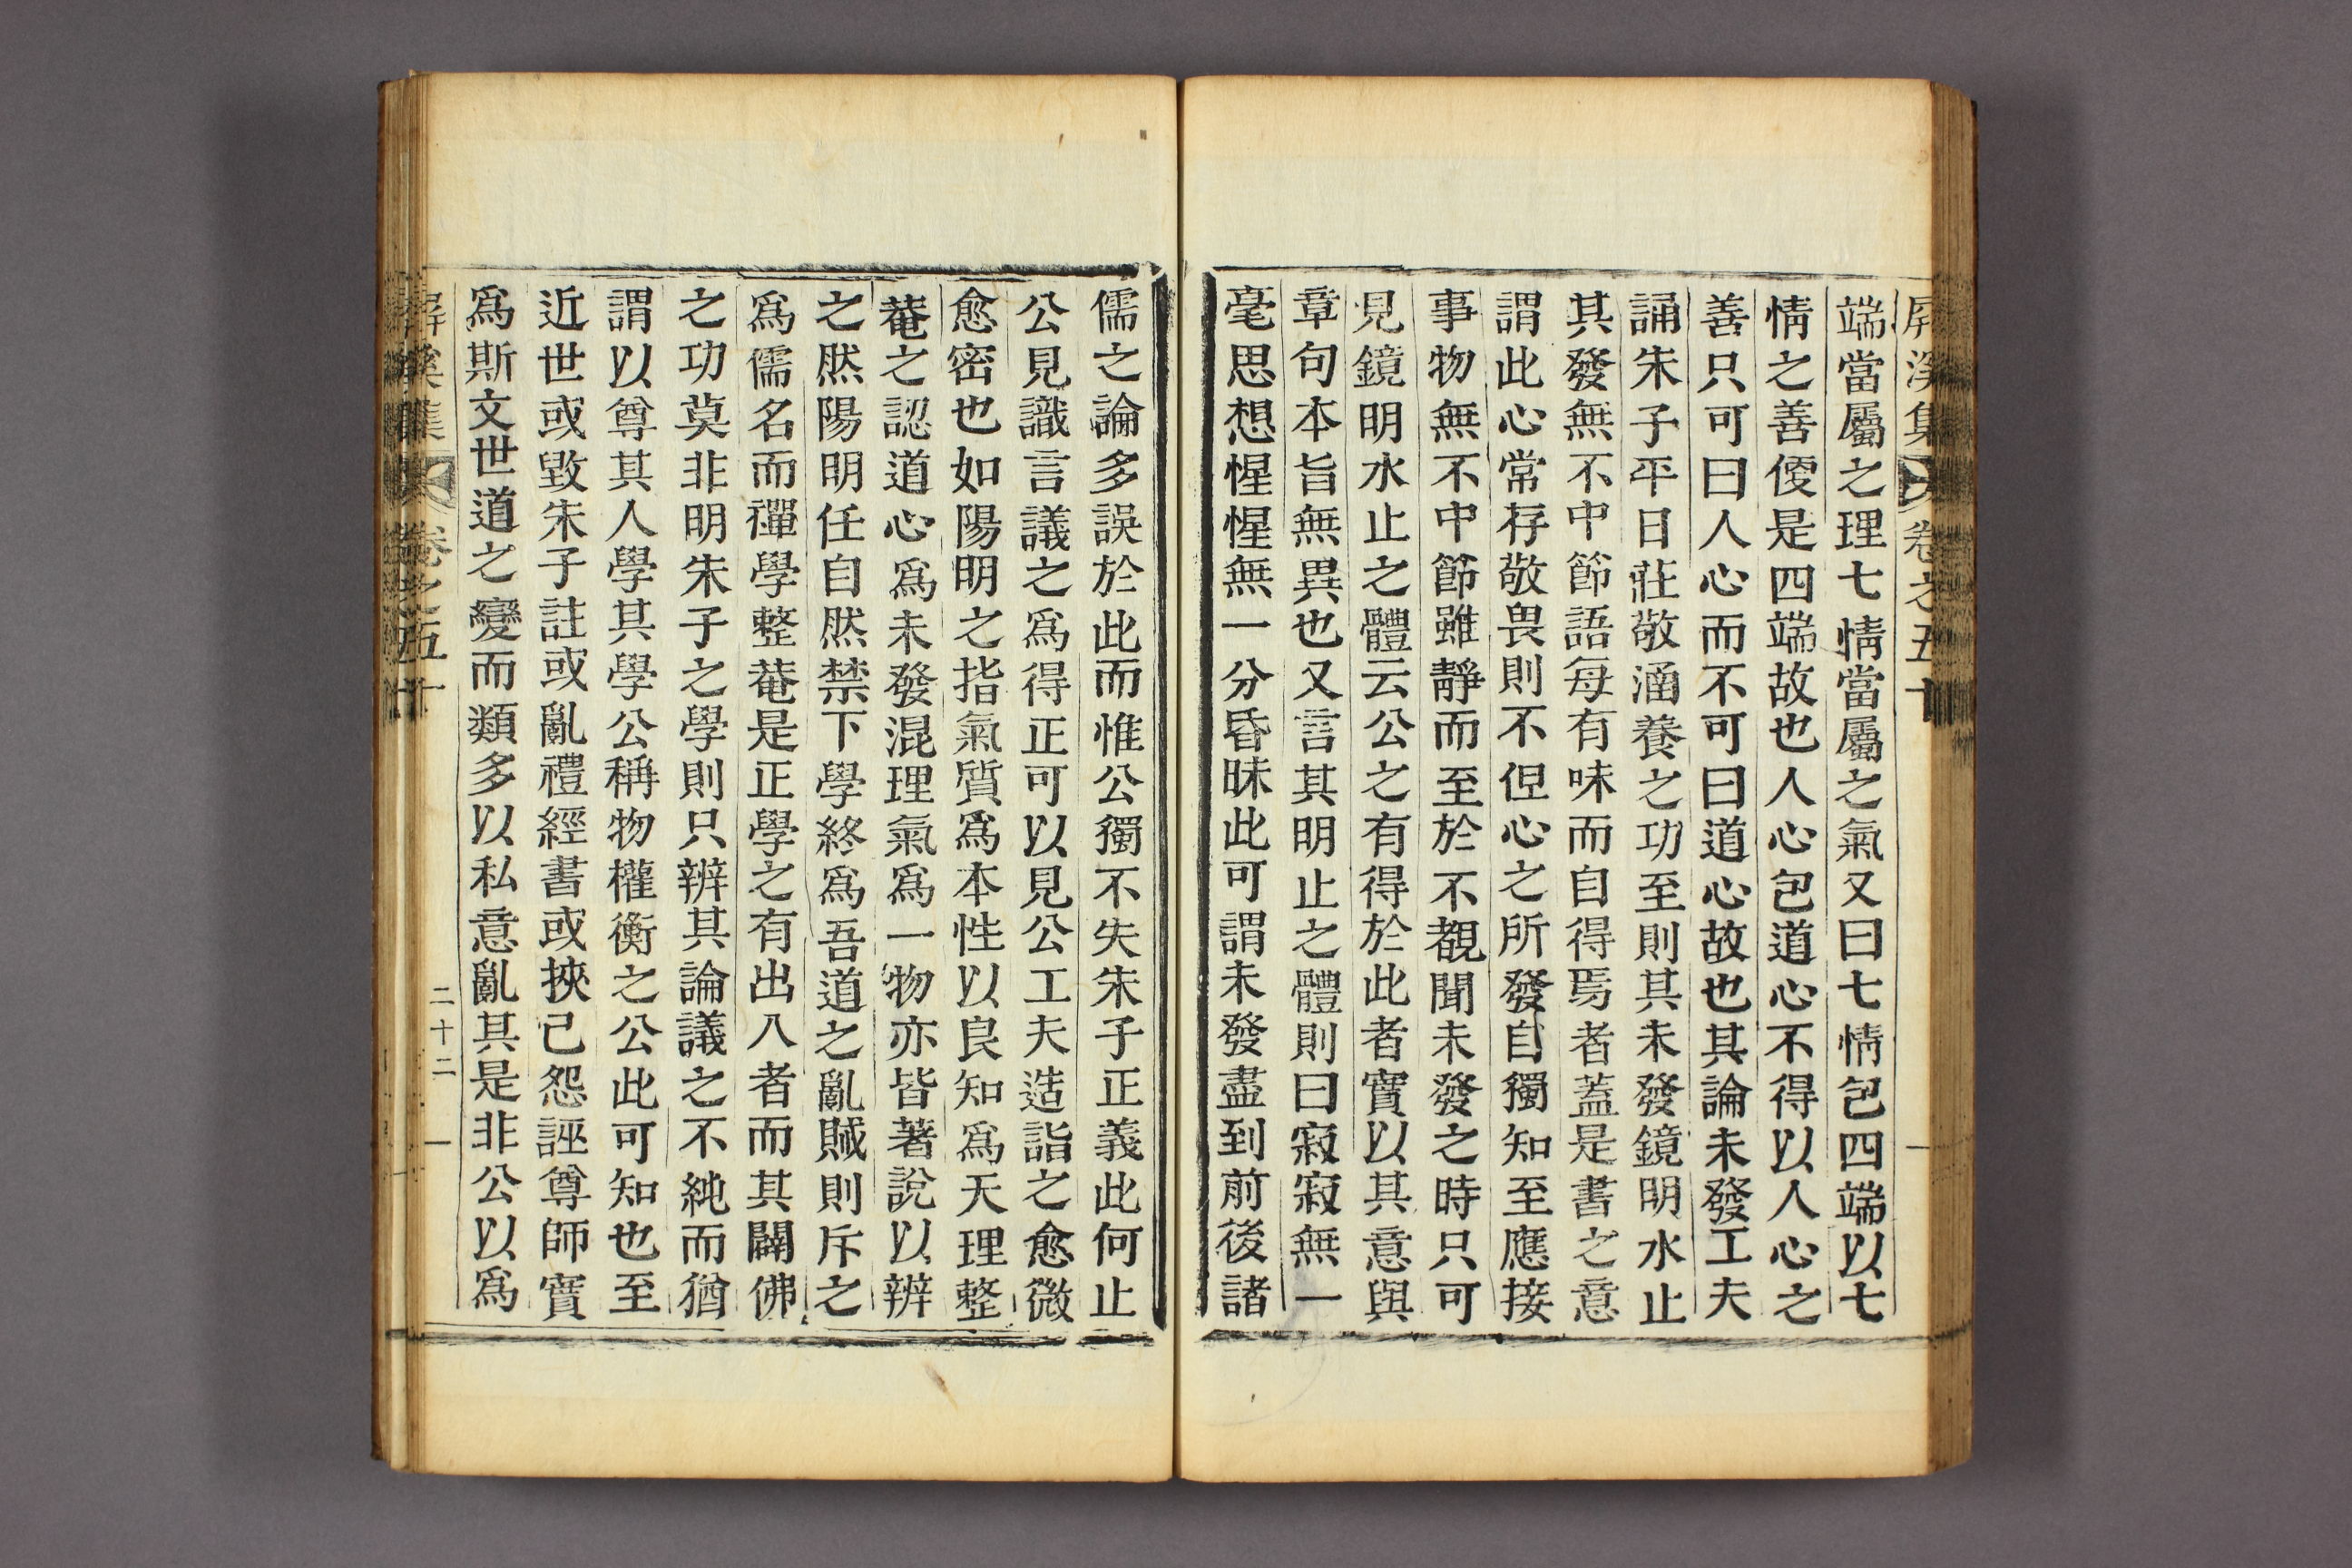 屛溪集 卷之五十
端當屬之理七情當屬之氣又曰七情包四端以七
情之善便是四端故也人心包道心不得以人心之
善只可曰人心而不可曰道心故也其論未發工夫
誦朱子平日莊敬涵養之功至則其未發鏡明水止
其發無不中節語每有味而自得焉者蓋是書之意
謂此心常存敬畏則不但心之所發自獨知至應接
事物無不中節雖靜而至於不覩聞未發之時只可
見鏡明水止之體云公之有得於此者實以其意與
章句本旨無異也又言其明止之體則曰寂寂無一
毫思想惺惺無一分昏昧此可謂未發盡到前後諸
儒之論多誤於此而惟公獨不失朱子正義此何止
公見識言議之爲得正可以見公工夫造詣之愈微
愈密也如陽明之指氣質爲本性以良知爲天理整
菴之認道心爲未發混理氣爲一物亦皆著說以辨
之然陽明任自然禁下學終爲吾道之亂賊則斥之
爲儒名而禪學整菴是正學之有出入者而其闢佛
之功莫非明朱子之學則只辨其論議之不純而猶
謂以尊其人學其學公稱物權衡之公此可知也至
近世或毀朱子註或亂禮經書或挾己怨誣尊師實
爲斯文世道之變而類多以私意亂其是非公以爲
屛溪集 卷之五十 二十二